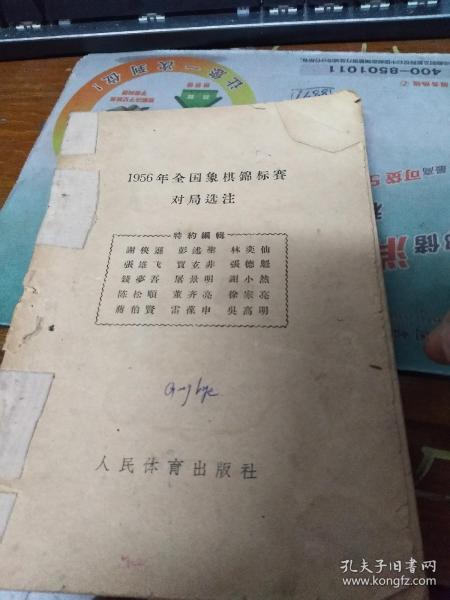 400-8501011
让您一次到位！
1956年全国象棋錦标賽
对局选注
特約編輯
謝俠遜 彭述聖 林奕仙
張雄飞 賈玄非 張德魁
錢夢吾 屠景明 謝小然
陈松順 董齐亮 徐宗亮
蔣伯賢 雷葆申 吳高明
人民体育出版社
孔夫子旧书网
www.kongfz.com